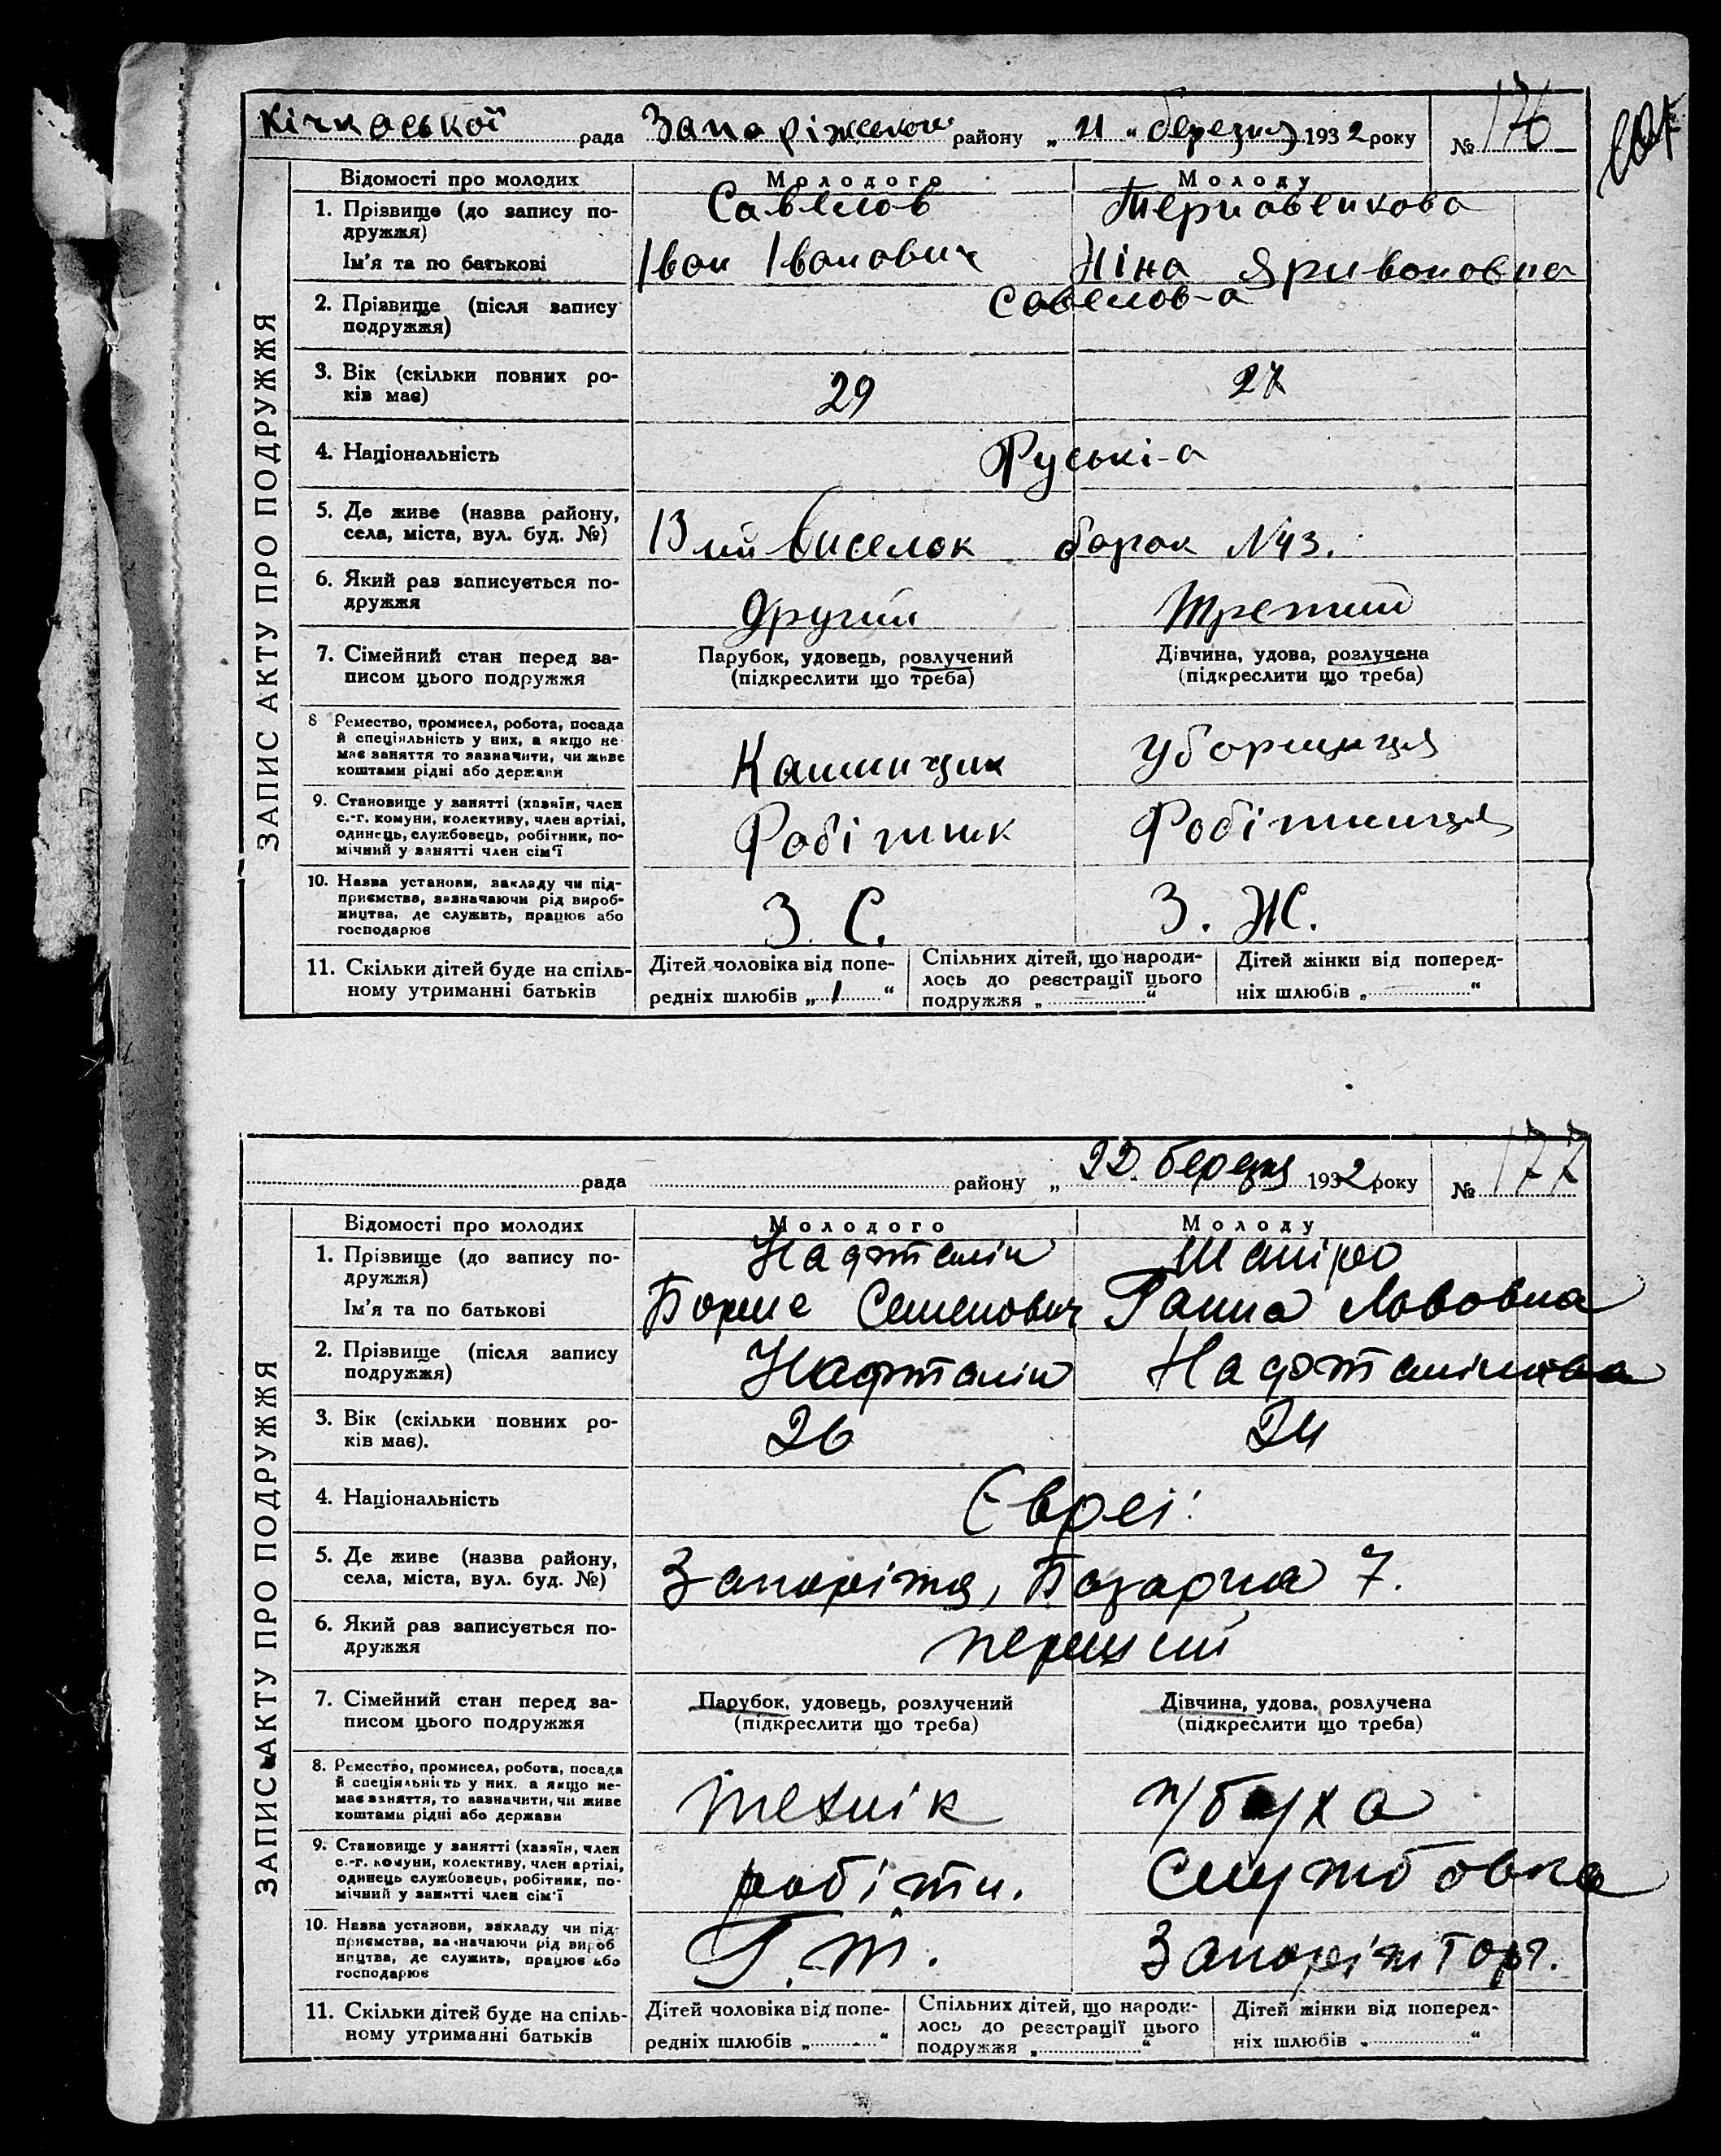 Кічкаської рада Запоріжськой району „ 21 “ березня 1932 року № 176
ЗАПИС АКТУ ПРО ПОДРУЖЖЯ
Відомості про молодих Молодого Молоду
1. Прізвище (до запису по- Савелов Терновенкова
дружжя)
Ім'я та по батькові Іван Іванович Ніна
2. Прізвище (після запису Савелов-а
подружжя)
3. Вік (скільки повних ро- 29 27
ків має)
4. Національність Руські-а
5. Де живе (назва району, 13 ий виселок барак №43.
села, міста, вул. буд. №)
6. Який раз записується по- другий Третий
дружжя
7. Сімейний стан перед за- Парубок, удовець, розлучений Дівчина, удова, розлучена
писом цього подружжя (підкреслити що треба) (підкреслити що треба)
8 Ремество, промисел, робота, посада
й спеціяльність у них, а якщо не
має заняття то зазначити, чи живе уборщиця
коштами рідні або держави
9. Становище у занятті (хазяїн, член
с.-г. комуни, колективу, член артілі,
одинець, службовець, робітник, по- Робітник Робітниця
мічний у занятті член сім'ї
10. Назва установи, закладу чи під-
приємства, зазначаючи рід вироб-
ництва, де служить, працює або З. С. З. Ж.
господарює
11. Скільки дітей буде на спіль- Дітей чоловіка від попе- Спільних дітей, що народи- Дітей жінки від поперед-
ному утриманні батьків редніх шлюбів „ 1 “ лось до реєстрації цього ніх шлюбів „ “
подружжя „ “
рада району „ 22. березня 1932 року № 177
ЗАПИС АКТУ ПРО ПОДРУЖЖЯ
Відомості про молодих Молодого Молоду
1. Прізвище (до запису по- Нафталін Шапіро
дружжя)
Ім'я та по батькові Борис Семенович Ганна Львовна
2. Прізвище (після запису Нафталін Нафталінова
подружжя)
3. Вік (скільки повних ро- 26 24
ків має).
4. Національність Євреї
5. Де живе (назва району, Запоріжя, Базарна 7.
села, міста, вул. буд. №)
6. Який раз записується по- перший
дружжя
7. Сімейний стан перед за- Парубок, удовець, розлучений Дівчина, удова, розлучена
писом цього подружжя (підкреслити що треба) (підкреслити що треба)
8. Ремество, промисел, робота, посада
й спеціяльність у них, а якщо не-
має заняття, то зазначити, чи живе технік п/бух
коштами рідні або держави
9. Становище у занятті (хазяїн, член
с.-г. комуни, колективу, член артілі,
одинець службовець, робітник, по- робітн. Службовка
мічний у занятті член сім'ї
10. Назва установи, закладу чи під-
приємства, зазначаючи рід вироб
ництва, де служить, працює або Г. Т. Запоріжторг.
господарює
11. Скільки дітей буде на спіль- Дітей чоловіка від попе- Спільних дітей, що народи- Дітей жінки від поперед-
ному утриманні батьків редніх шлюбів „ “ лось до реєстрації цього ніх шлюбів „ “
подружжя „ “